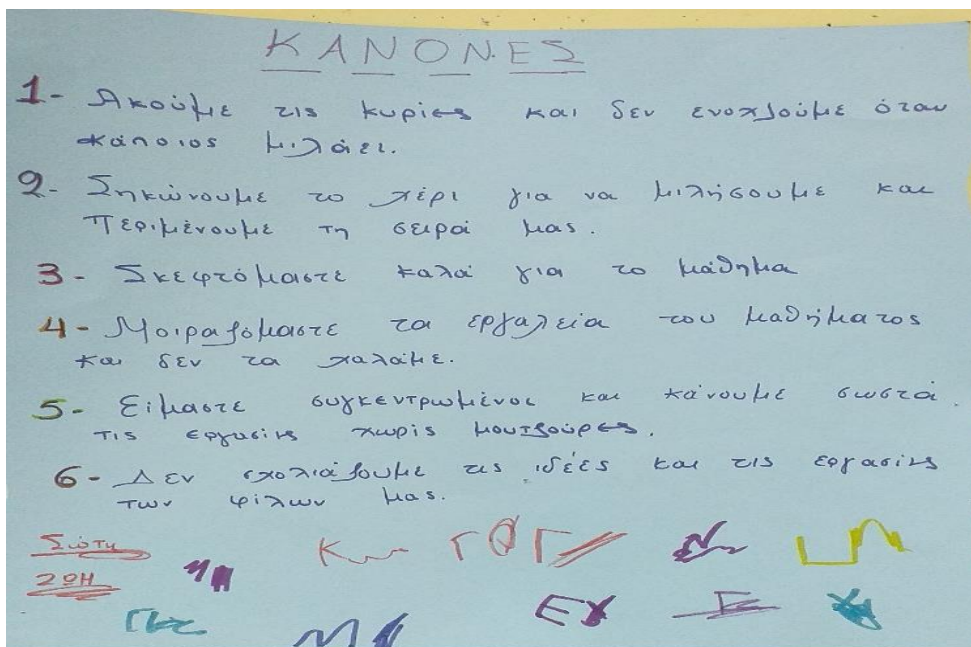 ΚΑΝΟΝΕΣ
1- Ακούμε τις κυρίες και δεν ενοχλούμε όταν
κάποιος μιλάει.
2- Σηκώνουμε το χέρι για να μιλήσουμε και
περιμένουμε τη σειρά μας.
3- Σκεφτόμαστε καλά για το μάθημα
4- Μοιραζόμαστε τα εργαλεία του μαθήματος
και δεν τα χαλάμε.
5- Είμαστε συγκεντρωμένοι και κάνουμε σωστά
τις εργασίες χωρίς μουτζούρες.
6- Δεν σχολιάζουμε τις ιδέες και τις εργασίες
των φίλων μας.
ΖΩΗ